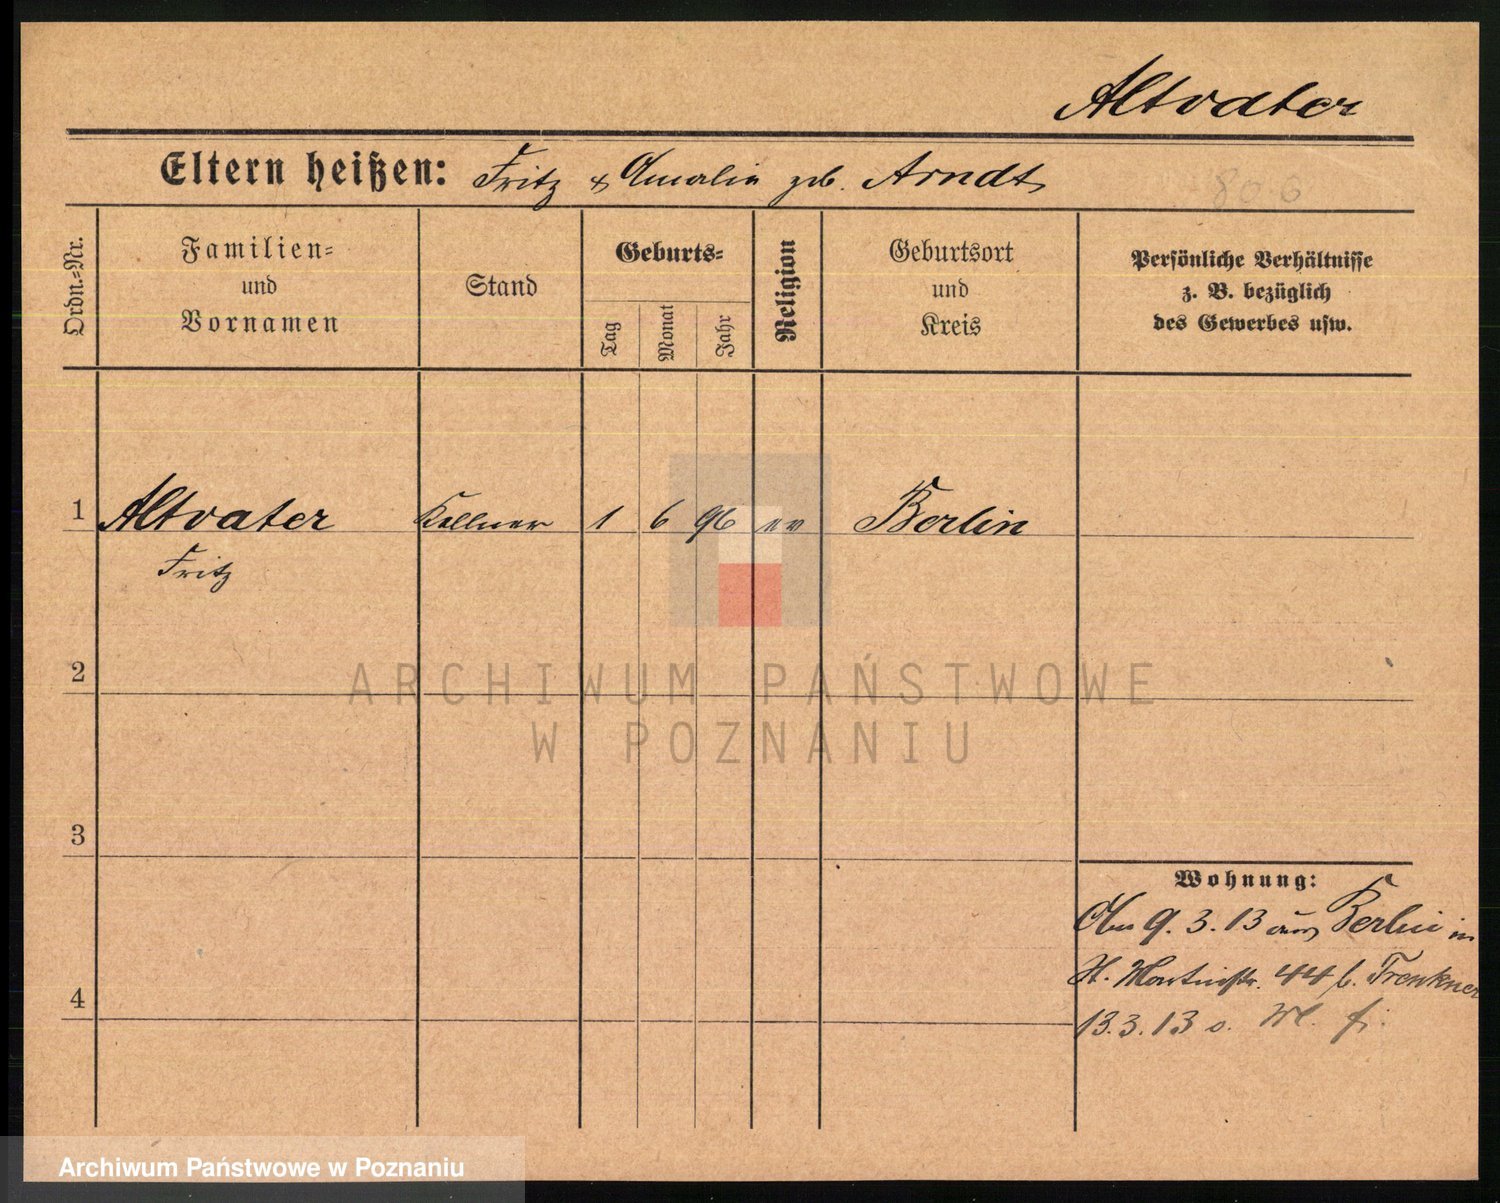 Altvater
Eltern heißen: Fritz & Amalie geb. Arndt
80.6
Ordn.=Nr.
Familien=
und
Vornamen
Stand
Geburts=
Tag
Monat
Jahr
Religion
Geburtsort
und
Kreis
Persönliche Verhältnisse
z. B. bezüglich
des Gewerbes usw.
1 Altvater Kellner 1 6 96 ev Berlin
Fritz
2
3
4
Wohnung:
Am 9. 3. 13 aus Berlin in
St. Martinstr. 44 b. Trenkner
13.3.13 s.
ARCHIWUM PAŃSTWOWE
W POZNANIU
Archiwum Państwowe w Poznaniu